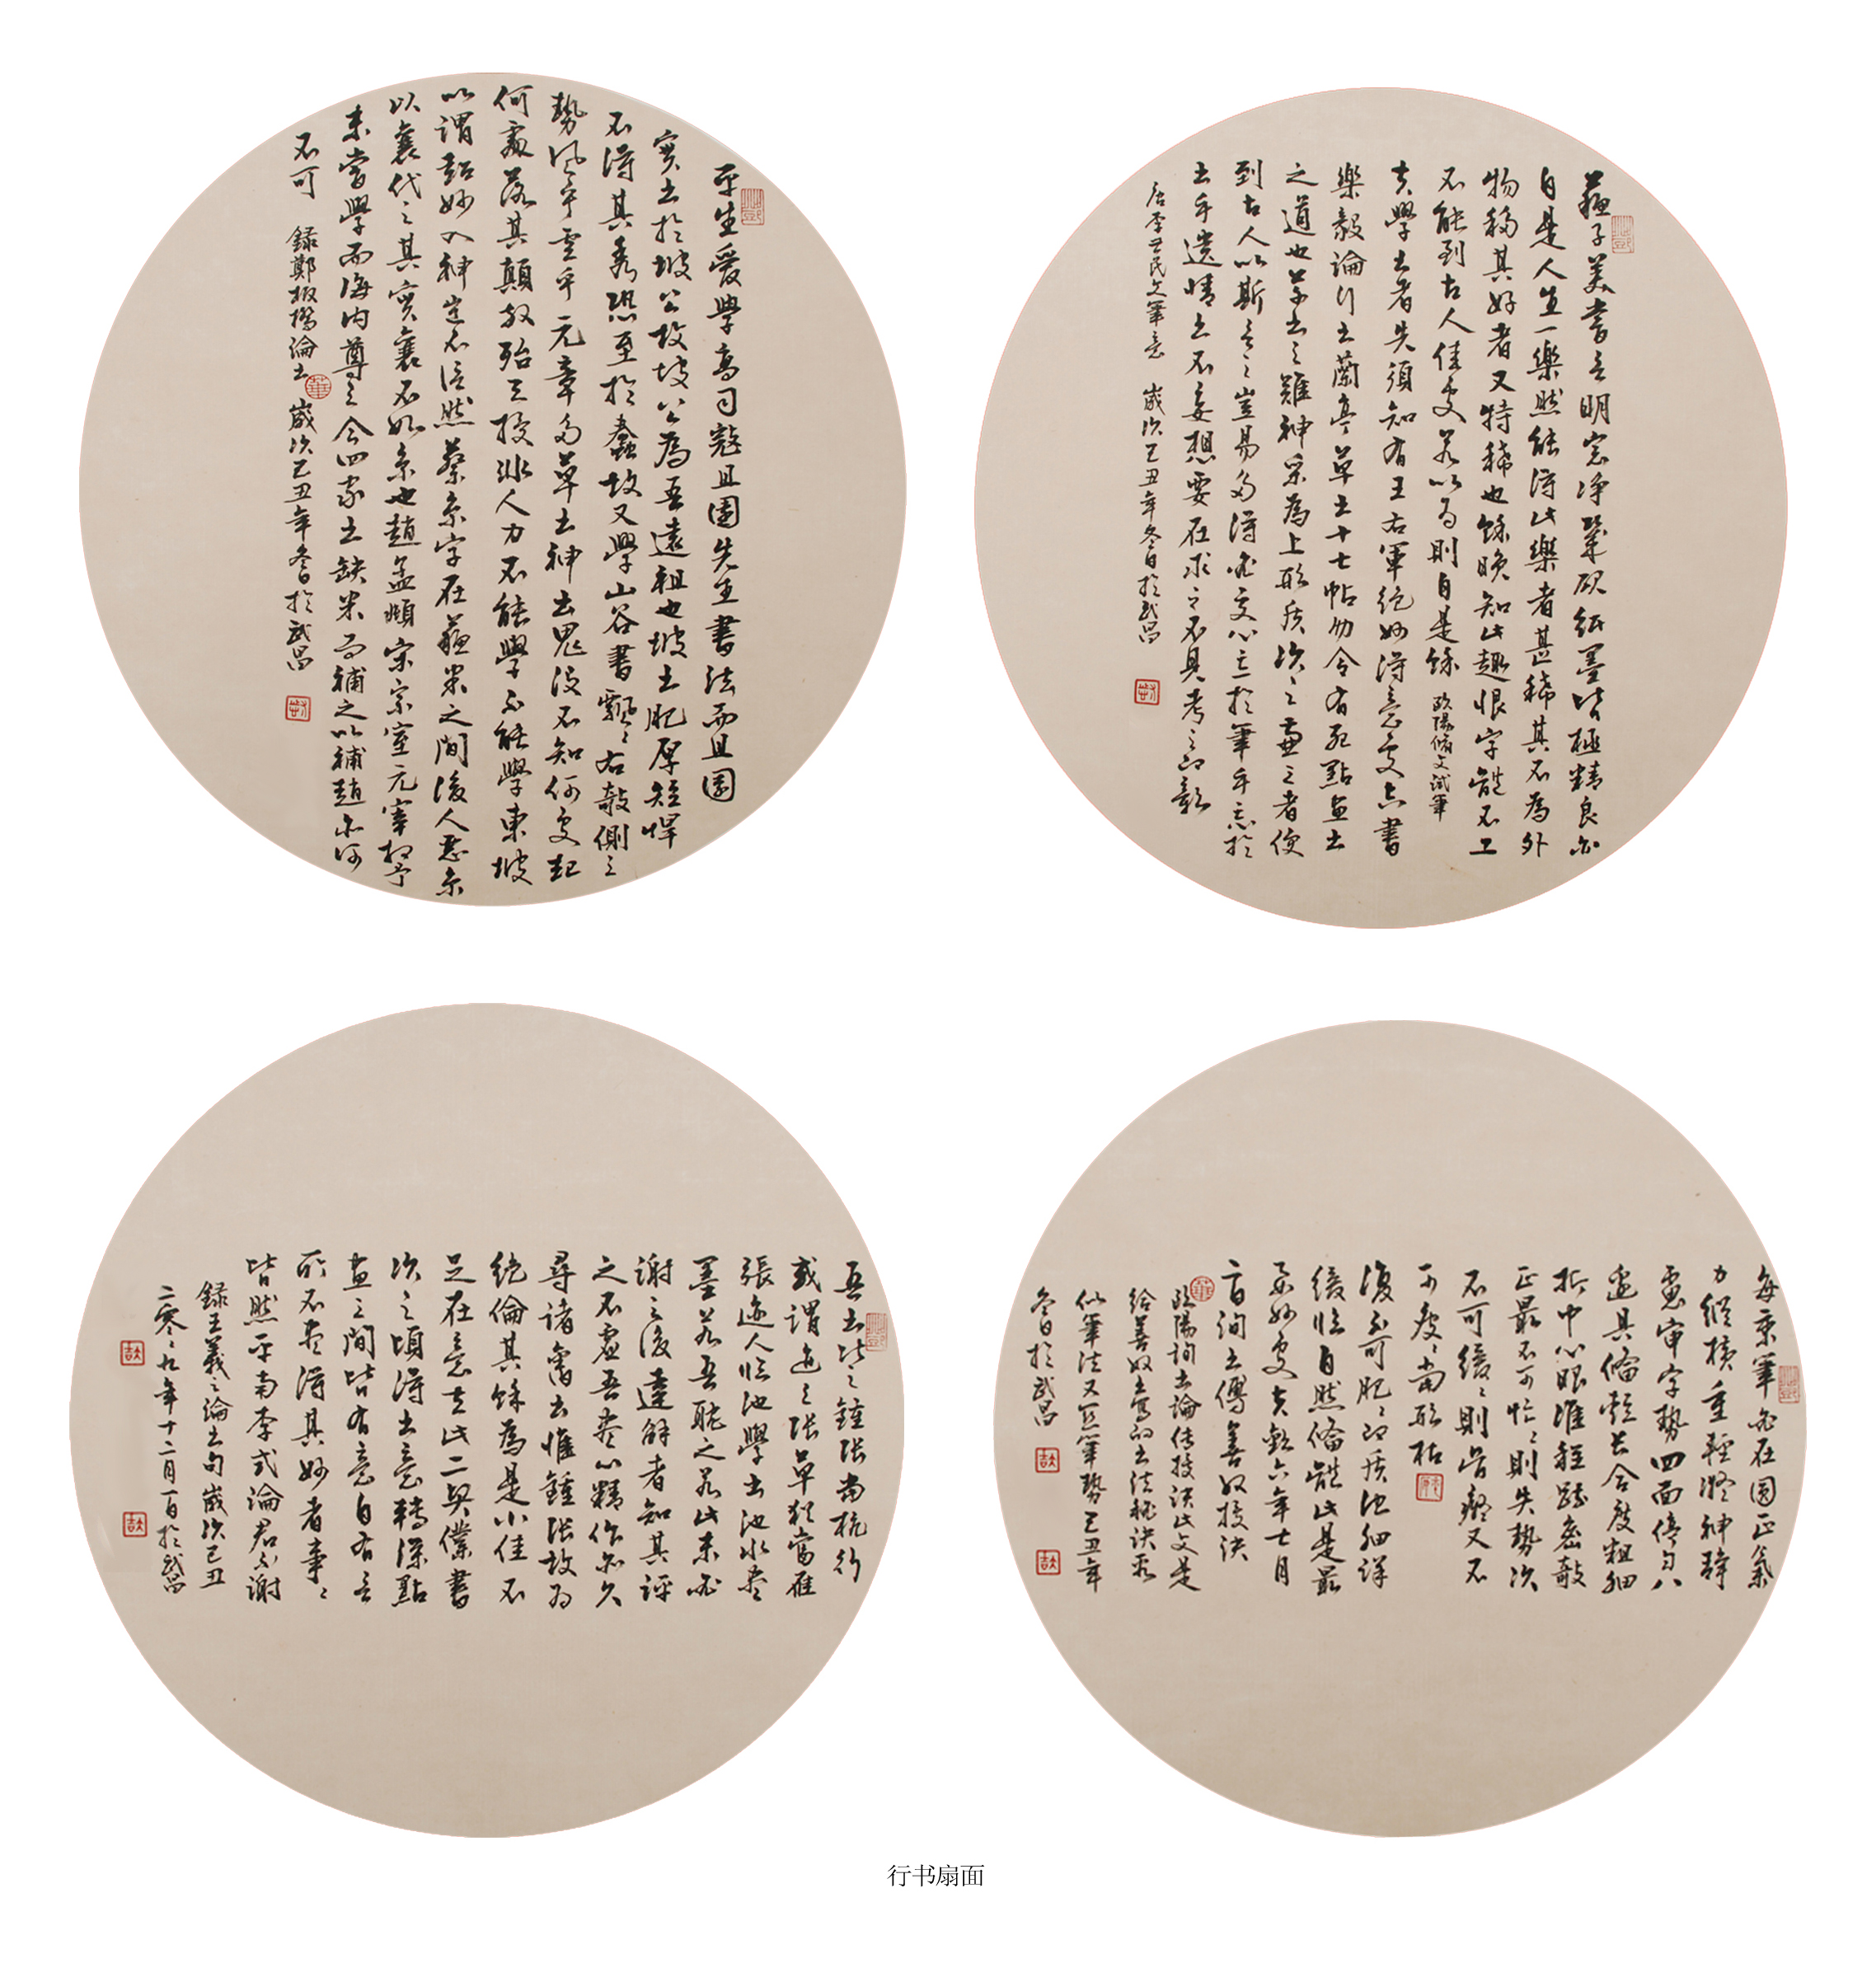 蘇子美嘗言明窓净硯紙墨皆極精良亦
自是人生一樂然能得此樂者甚稀其不為外
物移其好者又特稀也餘晚知此趣恨字體不工
不能到古人佳處若以為則自是餘 歐陽脩文試筆
夫學書者先須知有王右軍絕妙得意處真書
樂毅論行書蘭亭草書十七帖勿令有死點畫書
之道也學書之難神采為上形质次之兼之者便
到古人以斯言之豈易多得必交心忘於筆手忘於
書手遺情書不妄想要在求之不見考之即彰
唐李世民文筆意 歲次己丑年冬日於武昌
平生愛學高司寇且園先生書法而且園
實出於坡公故坡公為吾遠祖也坡書肥厚短悍
不得其秀恐至於蠢故又學山谷書飄々有欹側之
勢風乎雲乎元章多草書神出鬼沒不知何處起
何處落其顛放殆天授非人力不能學不能學東坡
以謂超妙入神豈不信然蔡京字在蘇米之間後人惡京
以襄代之其實襄不如京也趙孟頫宋宗室元宰相予
未嘗學而海內尊之今四家書缺米而補之以補趙亦何
不可 錄鄭板橋論書 歲次己丑年冬日於武昌
每秉筆必在圓正氣
力縱橫重輕凝神靜
慮審字勢四面停匀八
邊具備短長合度粗細
折中心眼准程疏密敧
正最不可忙々則失勢次
不可緩々則骨癡又不
可瘦々當形枯
復不可肥々即质濁細詳
緩臨自然備體此是最
要妙處貞觀六年七月
詢書傳善奴授訣
歐陽詢書論傳授訣此文是
給善奴書寫的書法秘訣不
似筆法又近筆勢己丑年
冬日於武昌
吾書比之鍾張當抗行
或謂過之張草猶當雁
張迹人臨池學書池水盡
墨若吾耽之若此未必
謝之後達解者知其評
之不虛吾盡心精作亦久
尋諸舊書惟鍾張故為
絕倫其餘為是小佳不
足在意去此二賢僕書
次之頃得書意轉深點
畫之間皆有意自有言
所不盡得其妙者事々
皆然平南李式論君不謝
錄王羲之論書句歲次己丑
二零零九年十二月一日於武昌
行书扇面